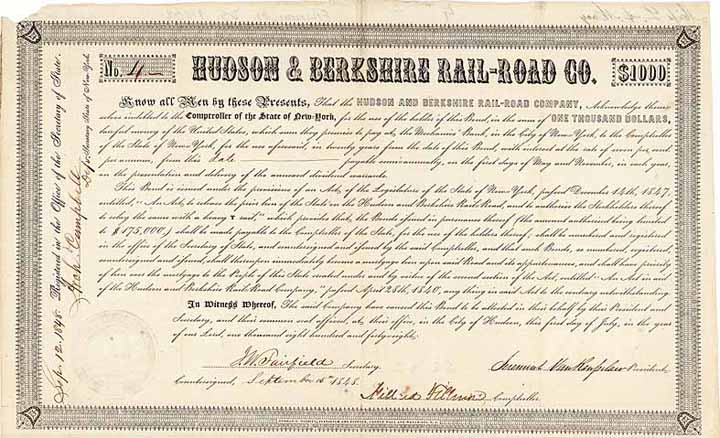 No. 4
HUDSON & BERKSHIRE RAIL-ROAD CO.
$1000
Know all Men by these Presents, That the HUDSON AND BERKSHIRE RAIL-ROAD COMPANY, Acknowledge themselves
indebted to the Comptroller of the State of New-York, for the use of the holder of this Bond, in the sum of ONE THOUSAND DOLLARS,
lawful money of the United States, which sum they promise to pay at the Mechanics' Bank, in the City of New-York, to the Comptroller
of the State of New York, for the use aforesaid, in twenty years from the date of this Bond, with interest at the rate of seven per cent
per annum, from this date payable semi-annually, on the first days of May and November, in each year,
on the presentation and delivery of the annexed dividend warrants.
This Bond is issued under the provisions of an Act, of the Legislature of the State of New York, passed December 14th, 1847,
entitled, "An Act, to release the prior lien of the State on the Hudson and Berkshire Rail Road, and to authorize the Stockholders thereof
to relay the same with a heavy T rail," which provides that, the Bonds issued in pursuance thereof (the amount authorized being limited
to $175,000,) shall be made payable to the Comptroller of the State, for the use of the holders thereof, shall be numbered and registered
in the office of the Secretary of State, and countersigned and issued by the said Comptroller, and that such Bonds, so numbered, registered,
countersigned and issued, shall thereupon immediately become a mortgage lien upon said Road and its appurtenances, and shall have priority
of lien over the mortgage to the People of this State created under and by virtue of the second section of the Act, entitled "An Act in aid
of the Hudson and Berkshire Rail Road Company," passed April 25th, 1840, any thing in said Act to the contrary notwithstanding.
In Witness Whereof, The said Company have caused this Bond to be attested in their behalf by their President and
Secretary, and their common seal affixed, at their office, in the City of Hudson, this first day of July, in the year
of our Lord, one thousand eight hundred and forty-eight.
J.W. Fairfield Secretary.
Jeremiah Van Rensselaer President.
Countersigned, September 15th 1848.
Millard Fillmore Comptroller.
Sep. 12, 1848. Registered in the Office of the Secretary of State.
Arch. Campbell
Dep. Secretary State of New-York.